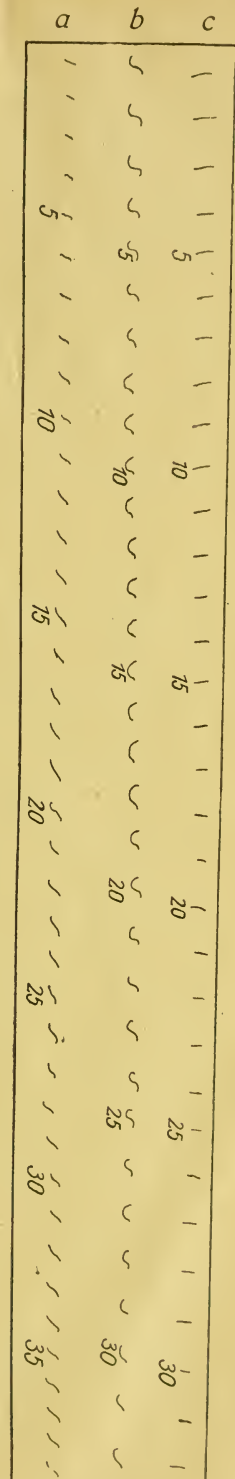 a b c
5 5 5
10 10 10
15 15 15
20 20 20
25 25 25
30 30 30
35